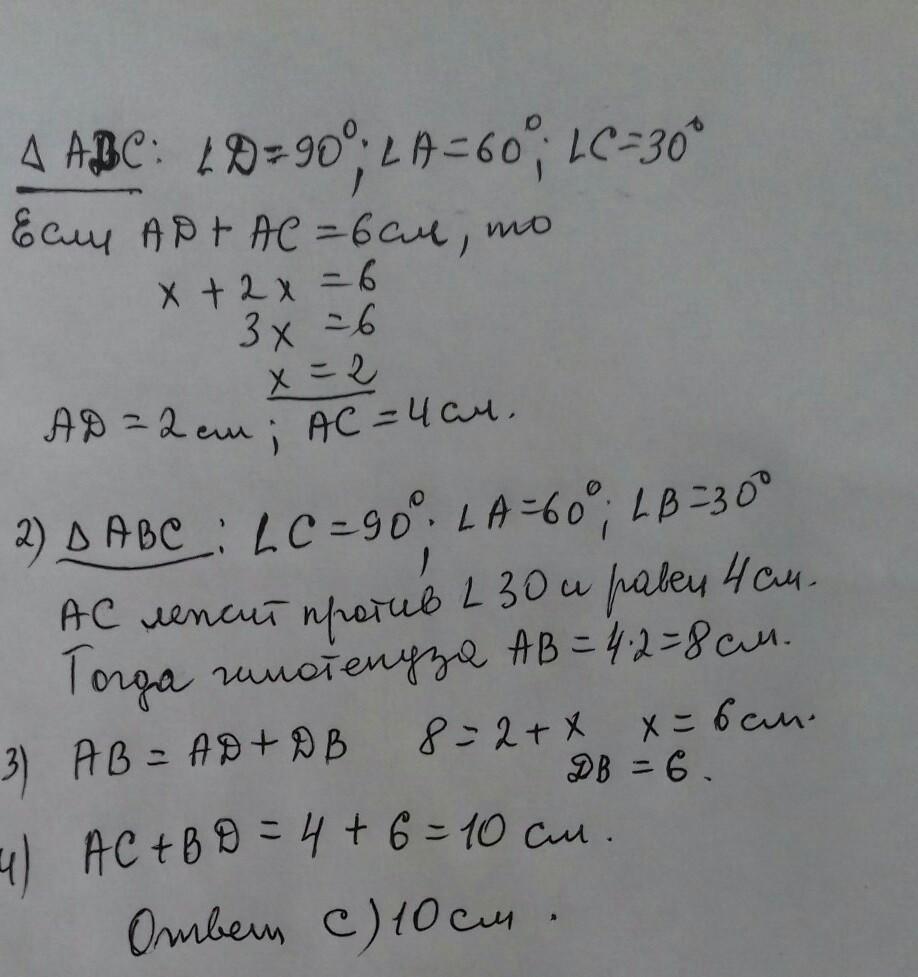 Δ ADC: ∠D=90°; ∠A=60°; ∠C=30°
Если AD + AC = 6 см, то
x + 2x = 6
3x = 6
x = 2
AD = 2 см; AC = 4 см.
2) Δ ABC : ∠C=90°; ∠A=60°; ∠B=30°
AC лежит против ∠30 и равен 4 см.
Тогда гипотенуза AB = 4·2=8 см.
3) AB = AD + DB 8 = 2 + x x = 6 см.
DB = 6.
4) AC + BD = 4 + 6 = 10 см.
Ответ C) 10 см.